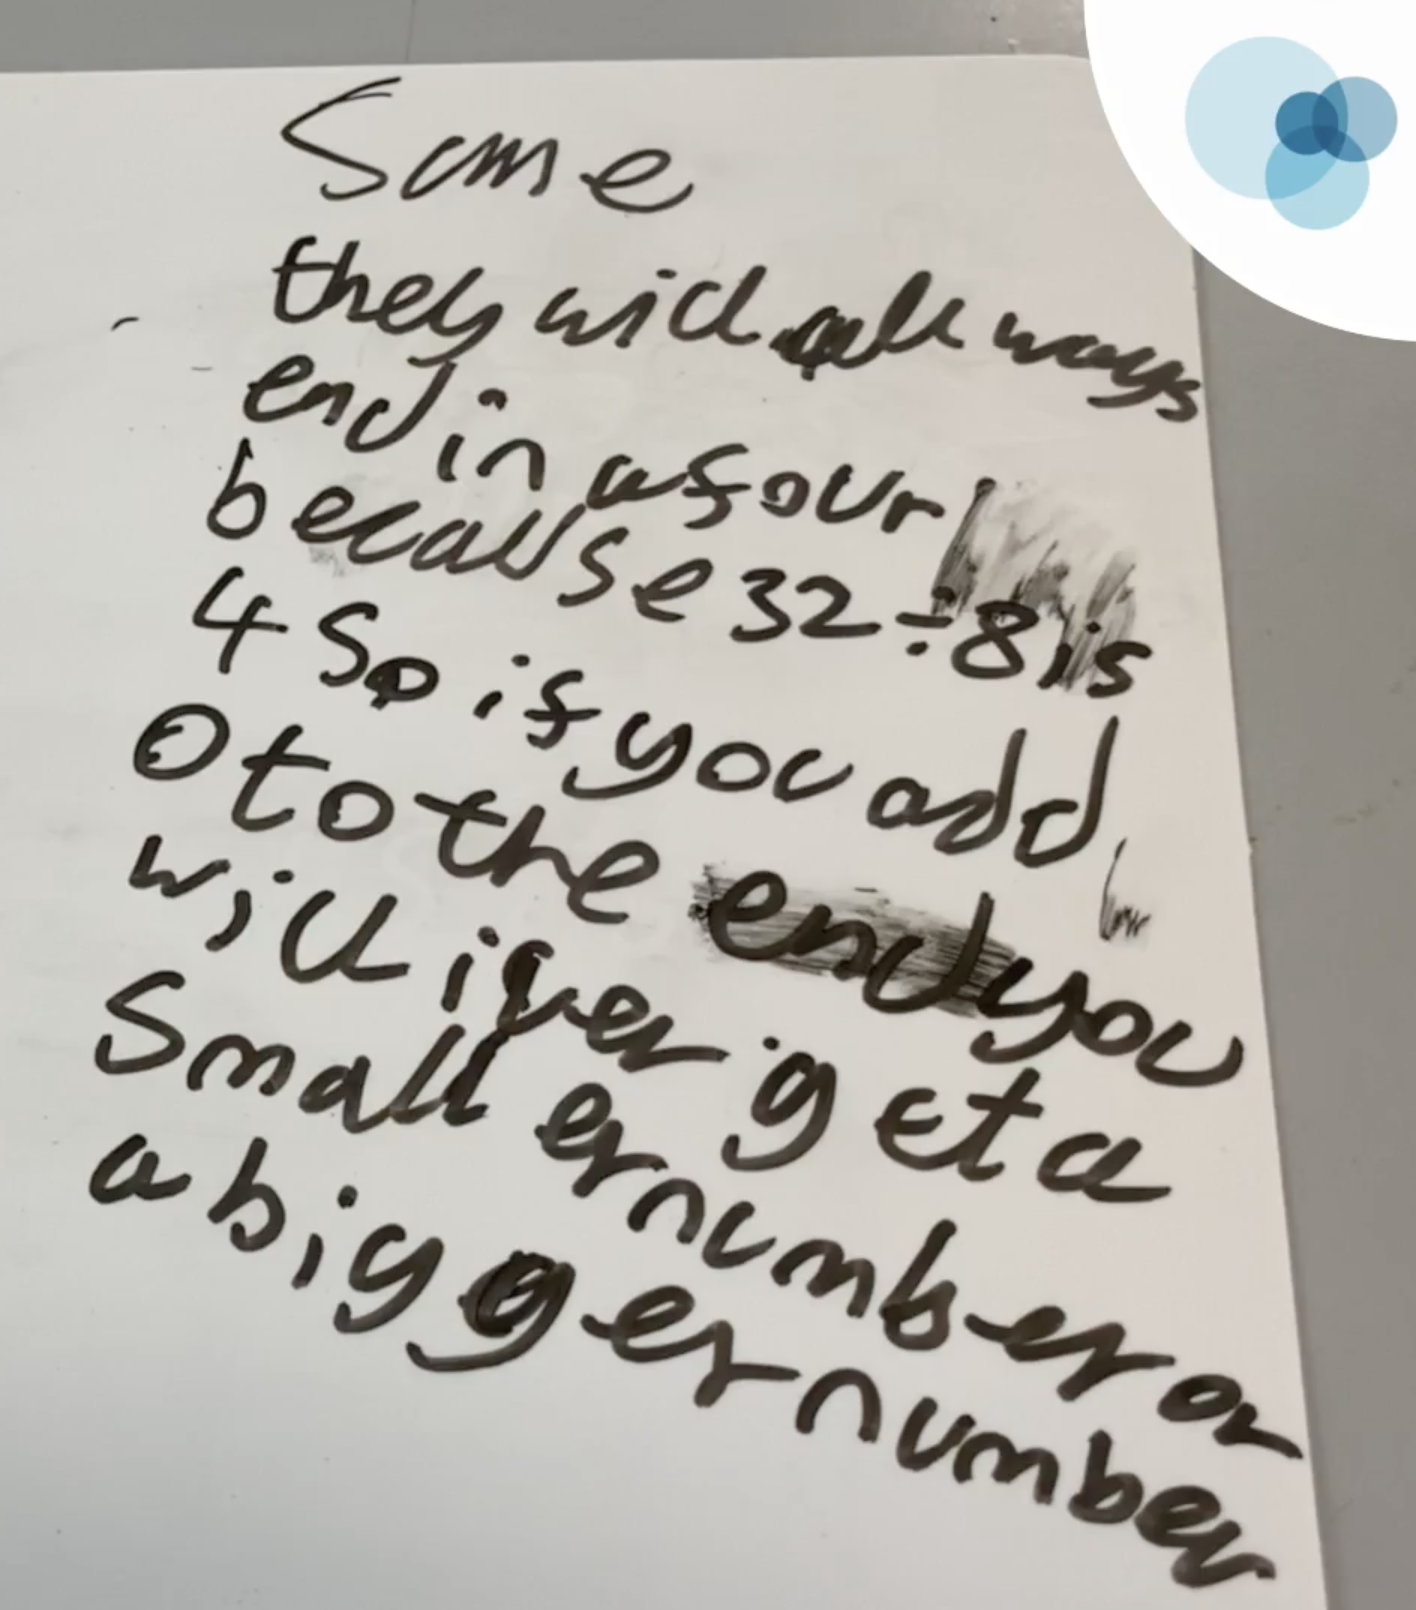 Same
they will allways
end in a four
because 32÷8 is
4 so if you add
0 to the end you
will iver get a
smaller number or
a bigger number